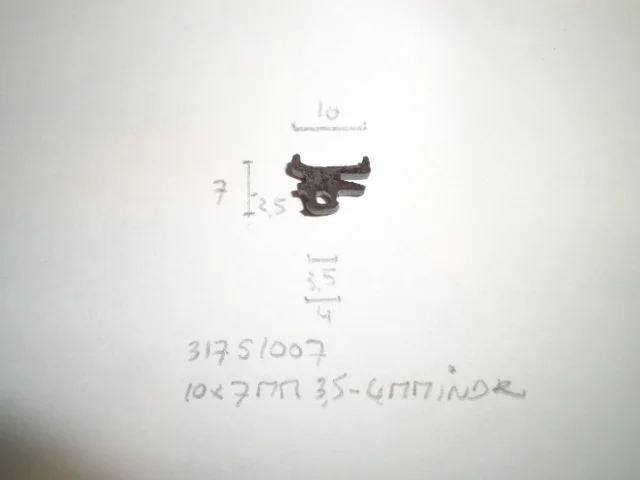 10
7
2,5
3,5
4
317S1007
10x7MM 3,5-4MMINDR